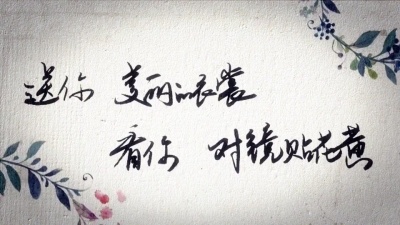 送你 美丽的衣裳
看你 对镜贴花黄